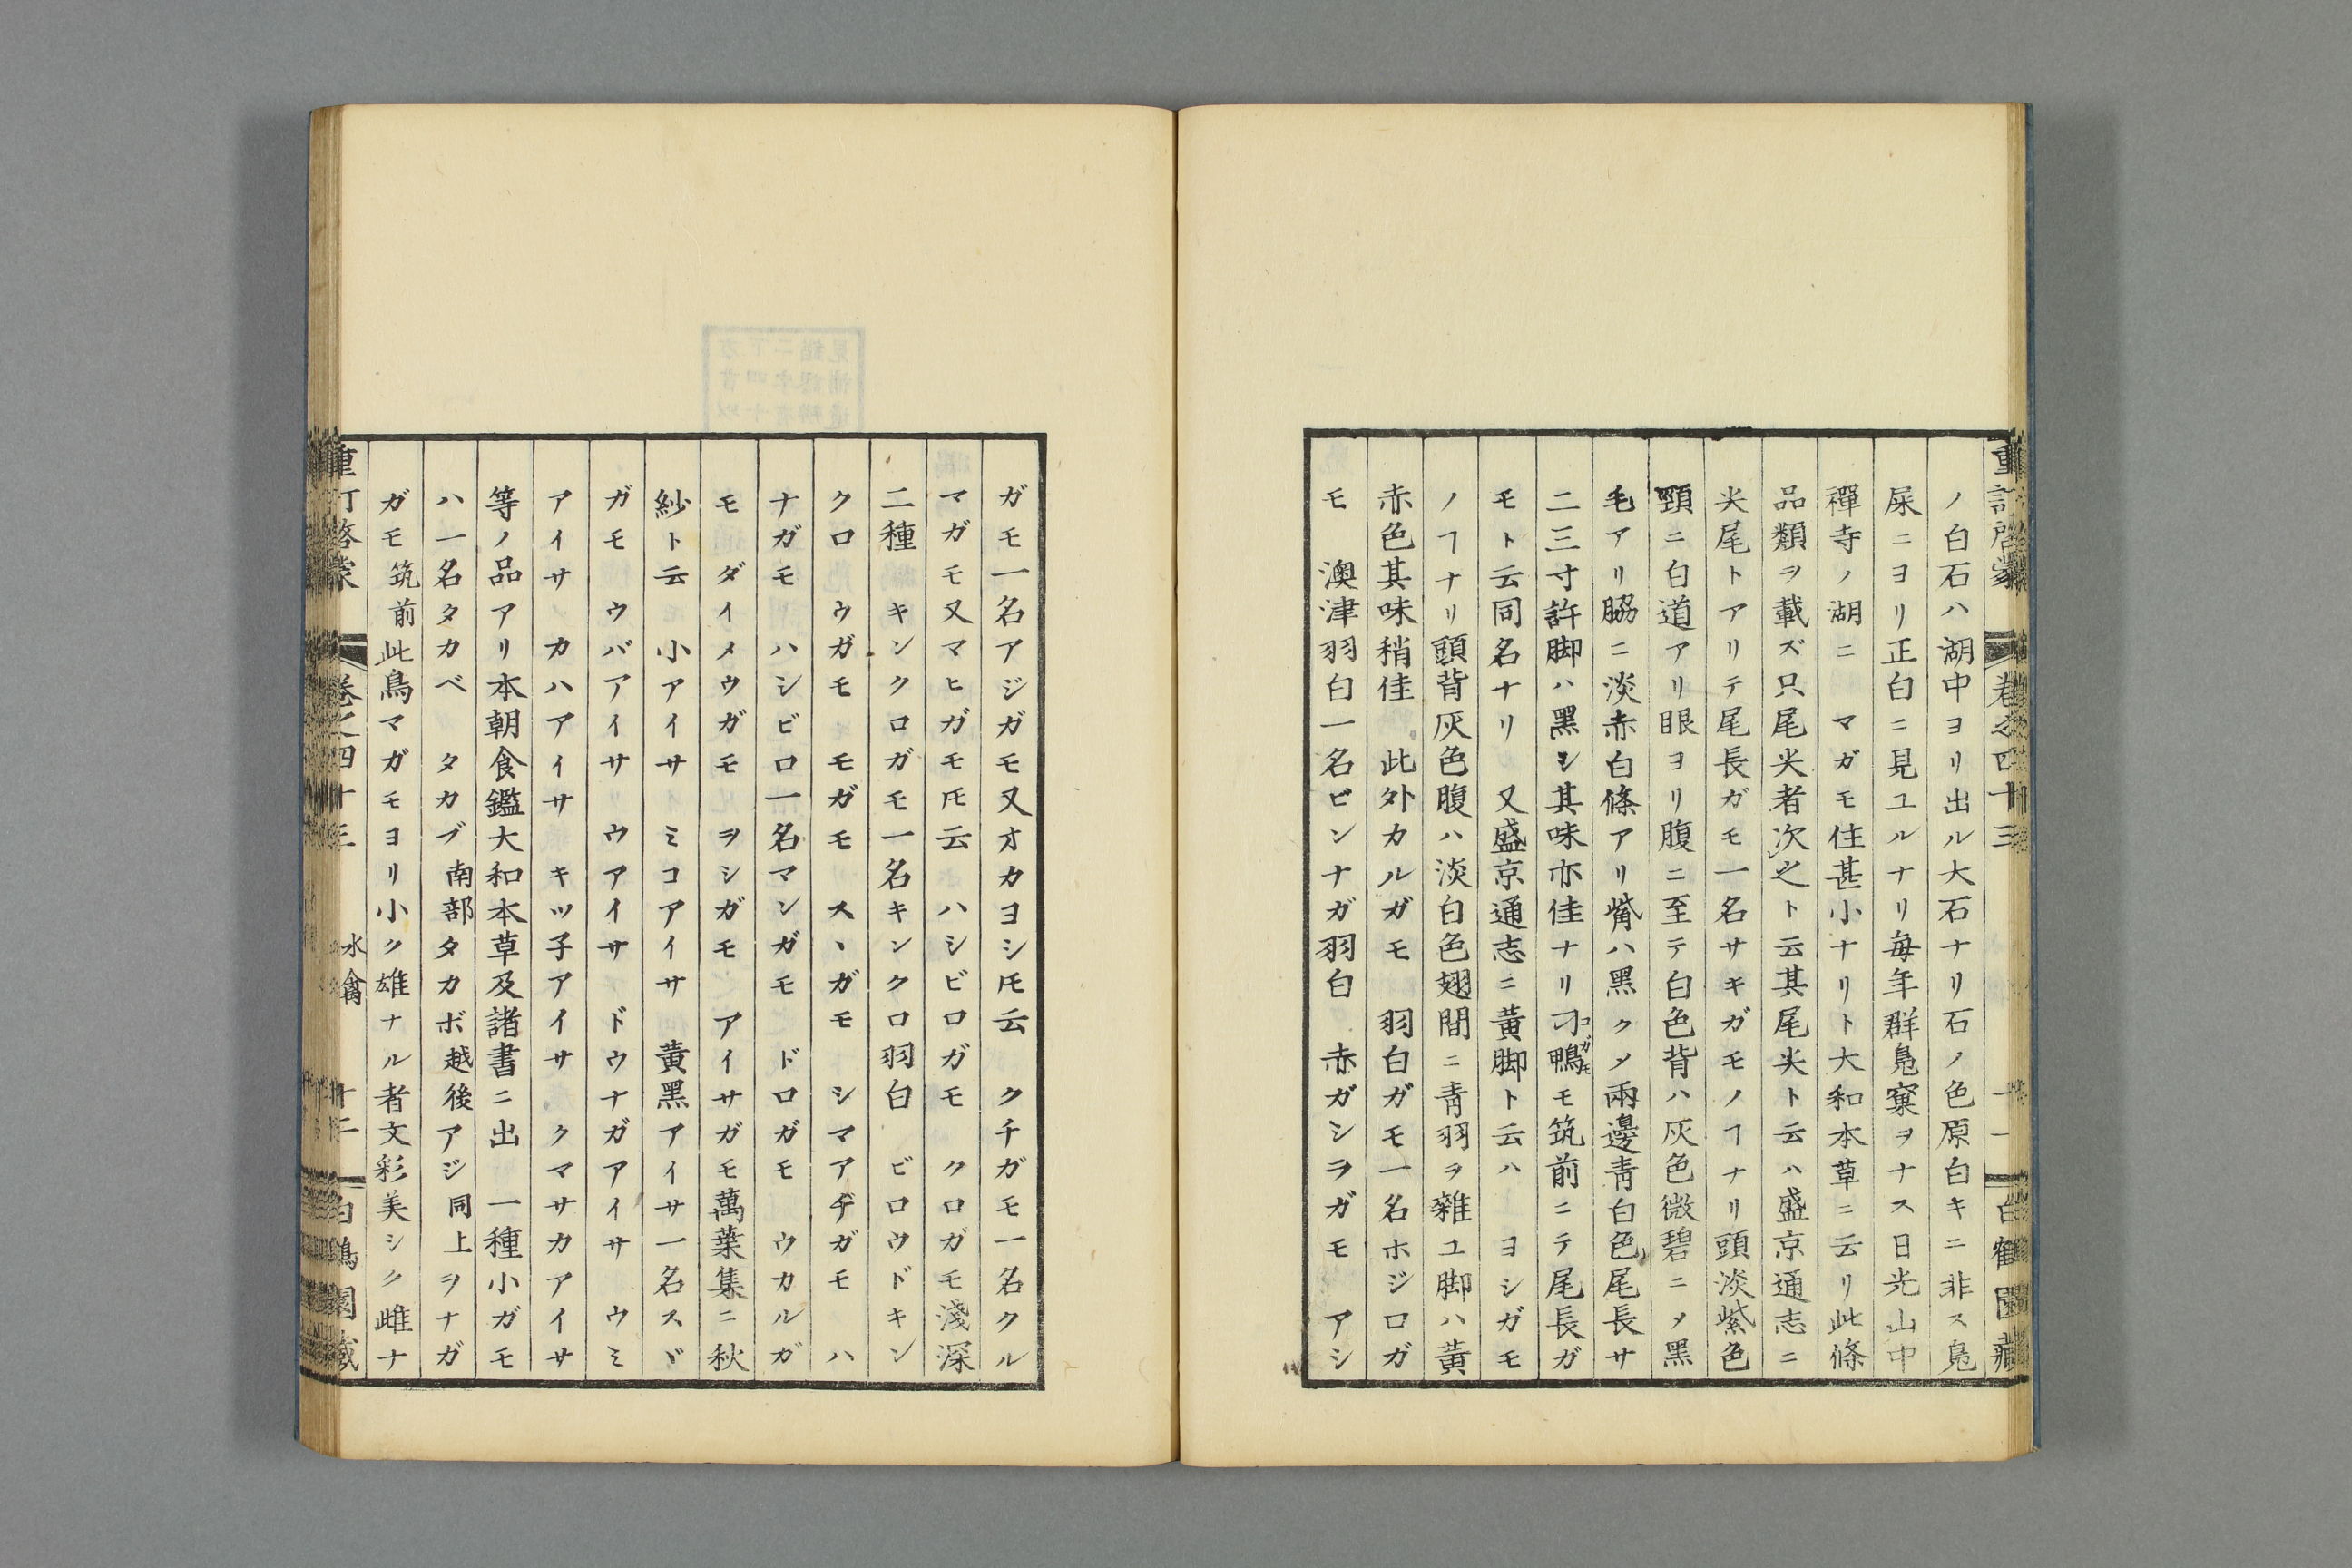 ノ白石ハ湖中ヨリ出ル大石ナリ石ノ色原白キニ非ス鳬
屎ニヨリ正白ニ見ユルナリ毎年群鳬窠ヲナス日光山中
禪寺ノ湖ニ マガモ住甚小ナリト大和本草ニ云リ此條
品類ヲ載ズ只尾尖者次之ト云其尾尖ト云ハ盛京通志ニ
尖尾トアリテ尾長ガモ一名サキガモノヿナリ頭淡紫色
頸ニ白道アリ眼ヨリ腹ニ至テ白色背ハ灰色微碧ニメ黑
毛アリ脇ニ淡赤白條アリ觜ハ黑クメ兩邊青白色尾長サ
二三寸許脚ハ黑シ其味亦佳ナリ刁鴨コガモモ筑前ニテ尾長ガ
モト云同名ナリ 又盛京通志ニ黃脚ト云ハ ヨシガモ
ノヿナリ頭背灰色腹ハ淡白色翅間ニ青羽ヲ雜ユ脚ハ黃
赤色其味稍佳 此外カルガモ 羽白ガモ一名ホジロガ
モ 澳津羽白一名ビンナガ羽白 赤ガシラガモ アシ
重訂啓蒙 卷之四十三 十一 白鶴園藏
ガモ一名アジガモ又オカヨシ𪜈云 クチガモ一名クル
マガモ又マヒガモ𪜈云 ハシビロガモ クロガモ淺深
二種 キンクロガモ一名キンクロ羽白 ビロウドキン
クロ ウガモ モガモ スヽガモ シマアヂガモ ハ
ナガモ ハシビロ一名マンガモ ドロガモ ウカルガ
モ ダイメウガモ ヲシガモ アイサガモ萬葉集ニ秋
紗ト云 小アイサ ミコアイサ 黃黑アイサ一名スヾ
ガモ ウバアイサ ウアイサ ドウナガアイサ ウミ
アイサ カハアイサ キツ子アイサ クマサカアイサ
等ノ品アリ本朝食鑑大和本草及諸書ニ出 一種小ガモ
ハ一名タカベ タカブ南部タカボ越後アジ同上ヲナガ
ガモ筑前此鳥マガモヨリ小ク雄ナル者文彩美シク雌ナ
重訂啓蒙 卷之四十三 水禽 十二 白鶴園藏